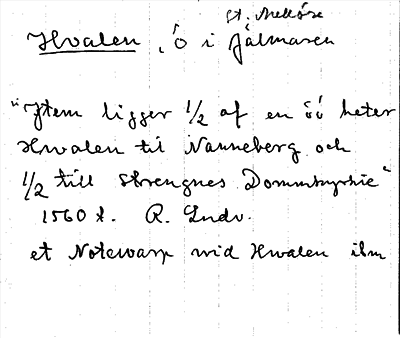 St. Mellösa
Hvalen, ö i Hjälmaren
"Jtem ligger 1/2 af en öö heter
Hwalen til Nanneberg och
1/2 till Strengnes Dommkyrkie"
1560 t. R. Lindv.
et Notewarp wid Hwalen ibm